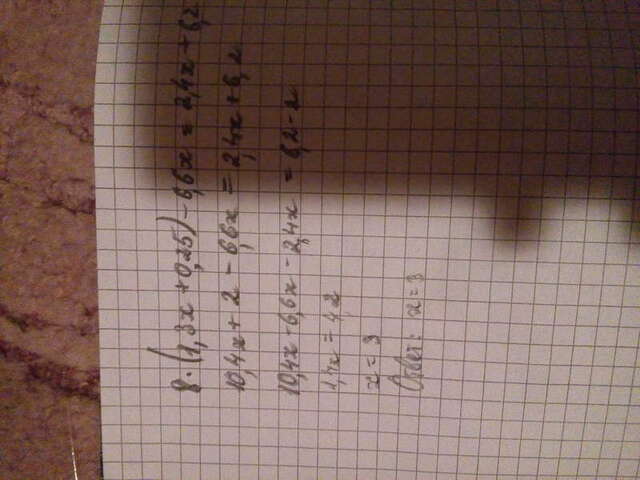 8·(1,3x+0,25)-6,6x=2,4x+6,2
10,4x+2-6,6x=2,4x+6,2
10,4x-6,6x-2,4x=6,2-2
1,4x=4,2
x=3
Ответ: x=3